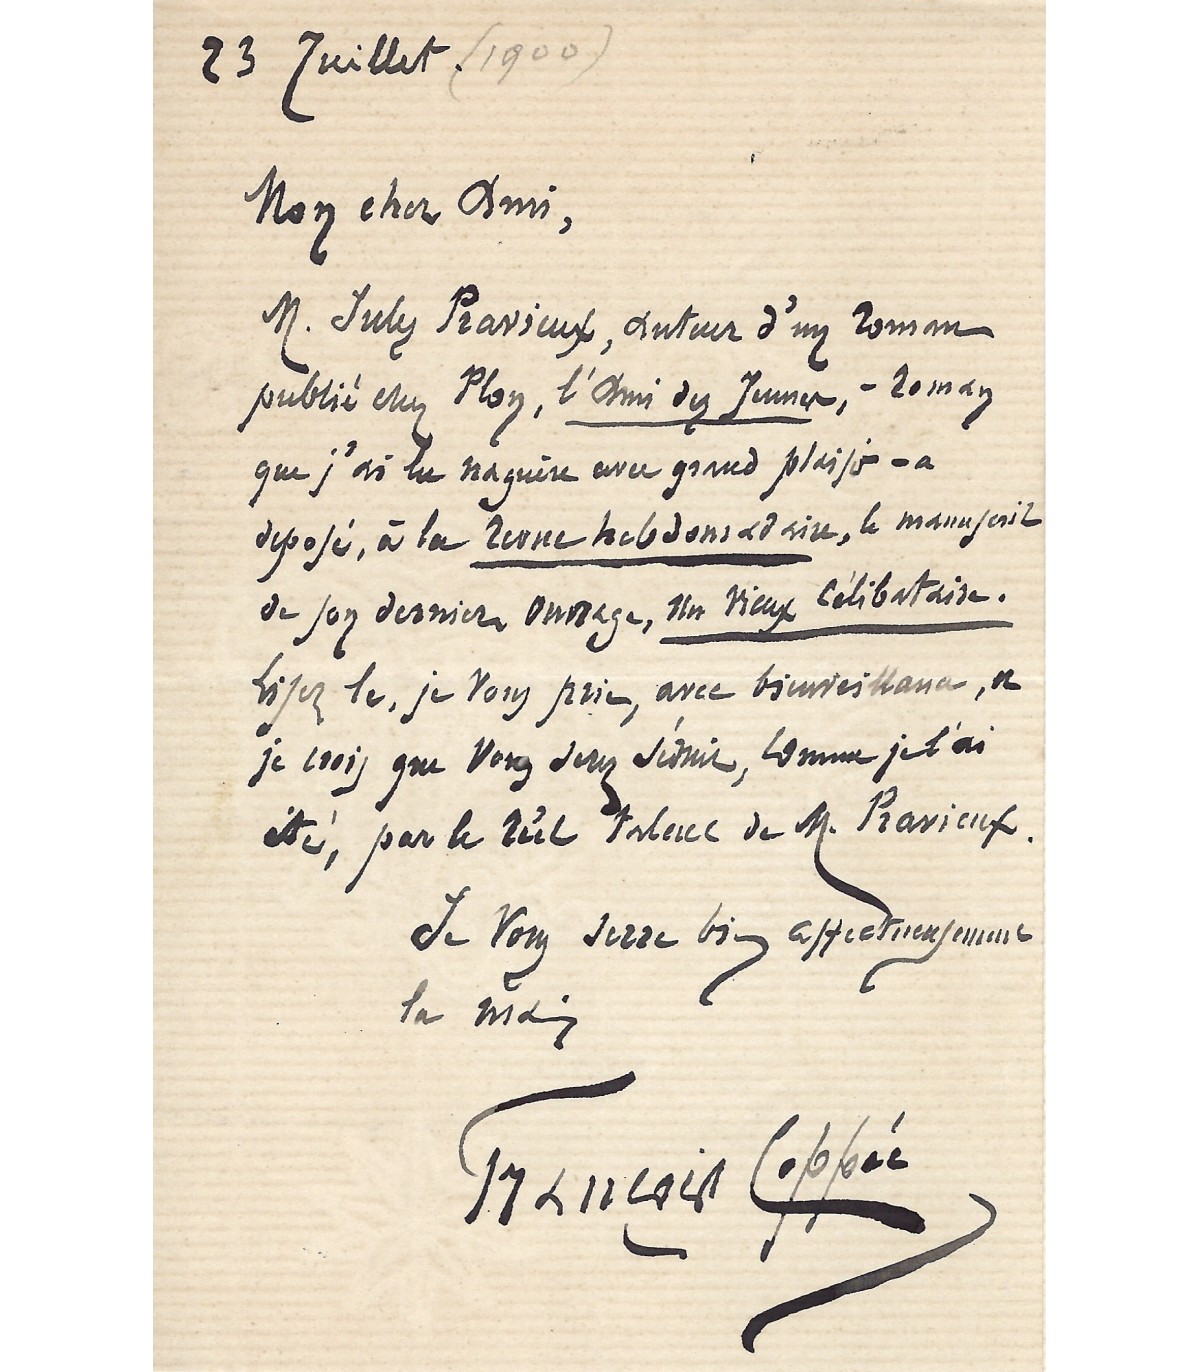 23 Juillet. (1900)
Mon cher Ami,
M. Jules Pravieux, auteur d'un roman
publié chez Plon, l'Ami des Jeunes, - roman
que j'ai lu naguère avec grand plaisir - a
déposé, à la Revue hebdomadaire, le manuscrit
de son dernier ouvrage, Un Vieux Célibataire.
Lisez le, je vous prie, avec bienveillance, et
je crois que vous serez séduit, comme je l'ai
été, par le réel talent de M. Pravieux.
Je vous serre bien affectueusement
la main
François Coppée